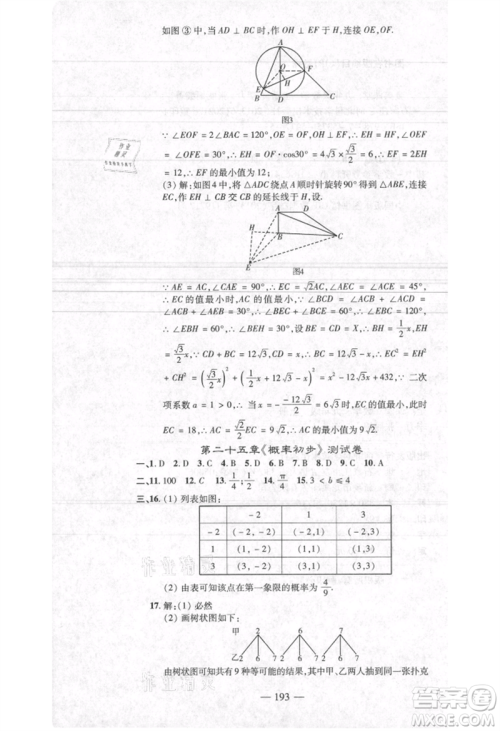 如图③中,当 AD⊥BC 时,作 OH⊥EF 于 H,连接 OE,OF.
A
O
F
E
H
B
D
C
图3
∵∠EOF=2∠BAC=120°,OE=OF,OH⊥EF,∴∠OEH
=∠OFE=30°,∴EH=OF·cos30°=4√3×√3/2=6,∴EF=2EH
=12,∴EF 的最小值为 12;
(3)解:如图4中,将△ADC绕点A顺时针旋转90°得到△ABE,连接
EC,作 EH⊥CB 交 CB 的延长线于 H,设.
A
D
H
B
C
E
图4
∵AE=AC,∠CAE=90°,∴EC=√2AC,∠AEC=∠ACE=45°,
∴EC 的值最小时,AC 的值最小,∵∠BCD=∠ACB+∠ACD=
∠ACB+∠AEB=30°,∴∠BEC+∠BCE=60°,∴∠EBC=120°,
∴∠EBH=60°,∠BEH=30°,设 BE=CD=X,∴BH=1/2x,EH=
√3/2x,∵CD+BC=12,CD=x,∴BC=12-x∴EC²=EH²
+CH²=(√3/2x)²+(1/2x+12√3-x)²=x²-12√3x+432,∵二次
项系数 a=1>0,∴当 x=-(-12√3)/2=6√3时,EC 的长最小,此时
EC=18,∴AC=√2/2EC=9√2,∴AC 的最小值为 9√2.
第二十五章《概率初步》测试卷
一、1.D 2.D 3.B 4.C 5.C 6.B 7.C 8.D 9.C 10.A
二、11.100 12.1/4;1/2 13.1/4 14.π/4 15.3<b≤4
三、16.(1)列表如图:
-2 1 3
1 (1,-2) (-2,1) (-2,3)
-2 (1,-2) (3,1) (1,3)
3 (3,-2) (-2,1) (-2,3)
(2)由表可知该点在第一象限的概率为4/9.
17.解:(1)必然
(2)画树状图如下:
甲 2 6 7
乙2 6 7 2 6 7 2 6 7
由树状图可知共有9种等可能的结果,其中甲、乙两人抽到同一张扑克
— 193 —